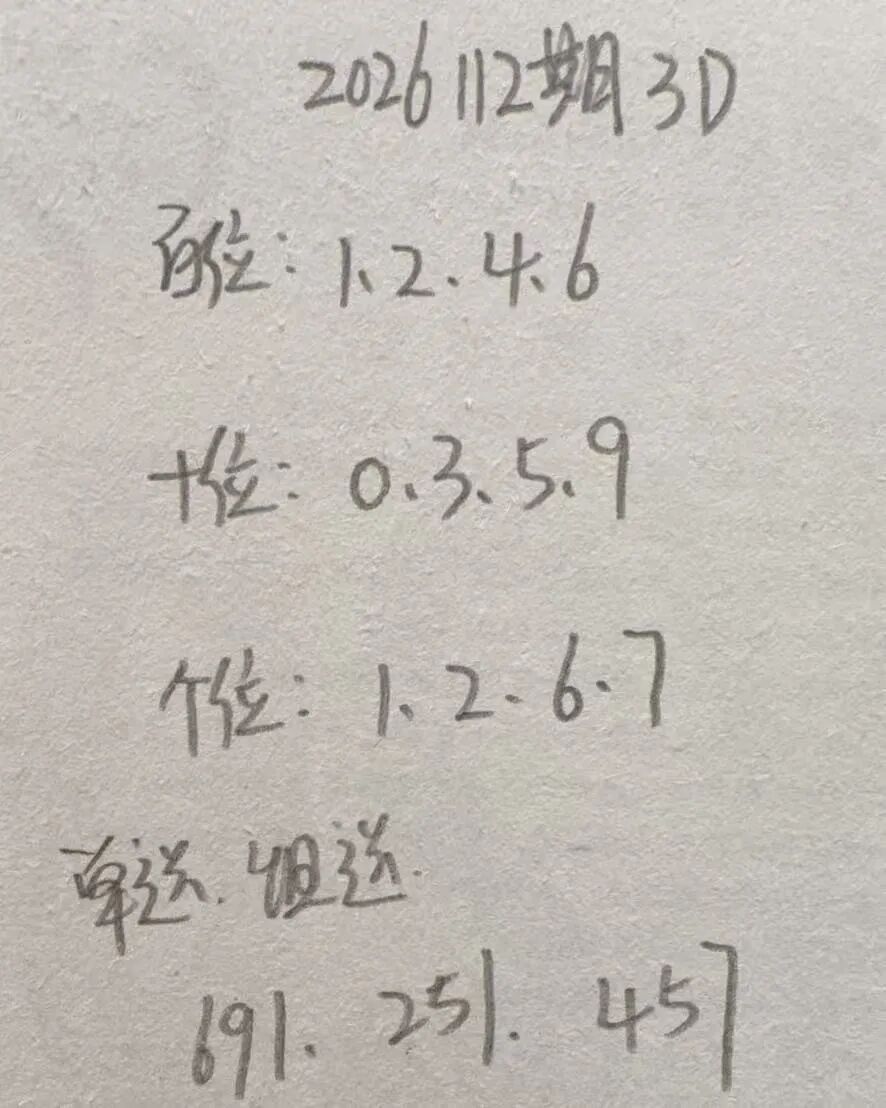 2026112期3D
百位：1、2、4、6
十位：0、3、5、9
个位：1、2、6、7
单选、组选
691、251、457